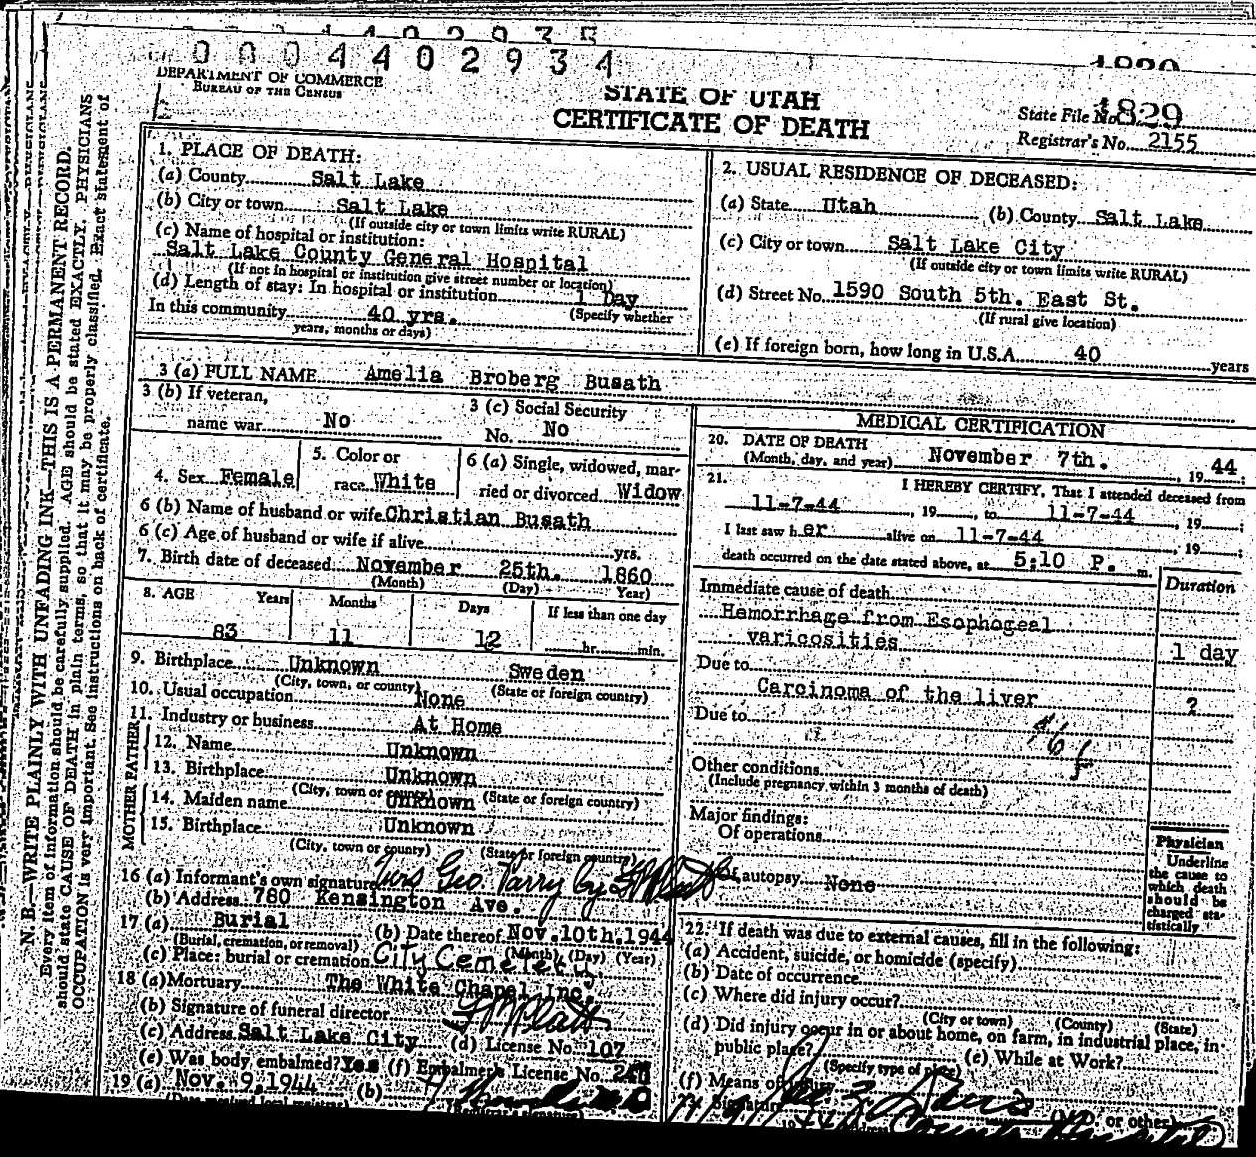 0004402934
DEPARTMENT OF COMMERCE
BUREAU OF THE CENSUS
STATE OF UTAH
CERTIFICATE OF DEATH
State File No. 1829
Registrar's No. 2155
1. PLACE OF DEATH:
(a) County Salt Lake
(b) City or town Salt Lake
(If outside city or town limits write RURAL)
(c) Name of hospital or institution:
Salt Lake County General Hospital
(If not in hospital or institution give street number or location)
(d) Length of stay: In hospital or institution 1 Day
In this community 40 yrs. (Specify whether
years, months or days)
2. USUAL RESIDENCE OF DECEASED:
(a) State Utah (b) County Salt Lake
(c) City or town Salt Lake City
(If outside city or town limits write RURAL)
(d) Street No. 1590 South 5th. East St.
(If rural give location)
(e) If foreign born, how long in U.S.A. 40 years
3 (a) FULL NAME Amelia Broberg Busath
3 (b) If veteran,
name war No
3 (c) Social Security
No. No
4. Sex Female
5. Color or
race White
6 (a) Single, widowed, mar-
ried or divorced Widow
6 (b) Name of husband or wife Christian Busath
6 (c) Age of husband or wife if alive yrs.
7. Birth date of deceased November 25th. 1860
(Month) (Day) Year)
8. AGE Years Months Days If less than one day
83 11 12 hr. min.
9. Birthplace Unknown Sweden
(City, town, or county) (State or foreign country)
10. Usual occupation None
11. Industry or business At Home
FATHER
12. Name Unknown
13. Birthplace Unknown
(City, town or county) (State or foreign country)
MOTHER
14. Maiden name Unknown
15. Birthplace Unknown
(City, town or county) (State or foreign country)
16 (a) Informant's own signature Mrs Geo. Varry by
(b) Address 780 Kensington Ave.
17 (a) Burial (b) Date thereof Nov. 10th, 1944
(Burial, cremation, or removal) (Month) (Day) (Year)
(c) Place: burial or cremation City Cemetery
18 (a) Mortuary The White Chapel Inc.
(b) Signature of funeral director
(c) Address Salt Lake City (d) License No. 107
(e) Was body embalmed? Yes (f) Embalmer's License No.
19 (a) Nov. 9, 1944 (b)
MEDICAL CERTIFICATION
20. DATE OF DEATH
(Month, day, and year) November 7th. , 19 44
21. I HEREBY CERTIFY, That I attended deceased from
11-7-44 , 19 , to 11-7-44 , 19 ;
I last saw h er alive on 11-7-44 , 19 ;
death occurred on the date stated above, at 5:10 P. m.
Duration
Immediate cause of death
Hemorrhage from Esophogeal
varicosities 1 day
Due to
Carcinoma of the liver ?
Due to
46 f
Other conditions
(Include pregnancy within 3 months of death)
Major findings:
Of operations
Of autopsy None
Physician
Underline
the cause to
which death
should be
charged sta-
tistically
22. If death was due to external causes, fill in the following:
(a) Accident, suicide, or homicide (specify)
(b) Date of occurrence
(c) Where did injury occur?
(City or town) (County) (State)
(d) Did injury occur in or about home, on farm, in industrial place, in
public place?
(Specify type of place) (e) While at Work?
(f) Means of
Signature Davis (M.D. or other)
N. B.—WRITE PLAINLY WITH UNFADING INK—THIS IS A PERMANENT RECORD.
Every item of information should be carefully supplied. AGE should be stated EXACTLY. PHYSICIANS
should state CAUSE OF DEATH in plain terms, so that it may be properly classified. Exact statement of
OCCUPATION is very important. See instructions on back of certificate.